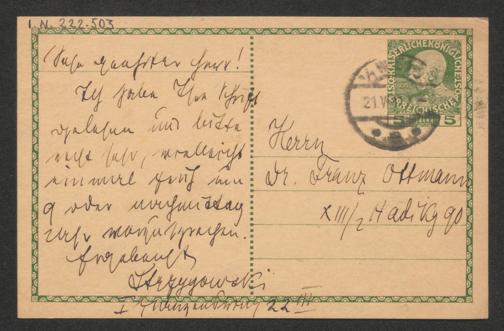 I.N. 222.503
Sehr geehrter Herr!
Ich habe Ihre Schrift
gelesen und bitte
recht sehr, vielleicht
einmal früh um
9 oder nachmittag
vorzusprechen.
Ergebenst
Strzygowski
I 22 III
KAISERLICHEKÖNIGLICHE
ÖSTERREICHISCHE
5 5
21.V
Herrn
Dr. Franz Ottmann
XIII/2 Hadikg 90